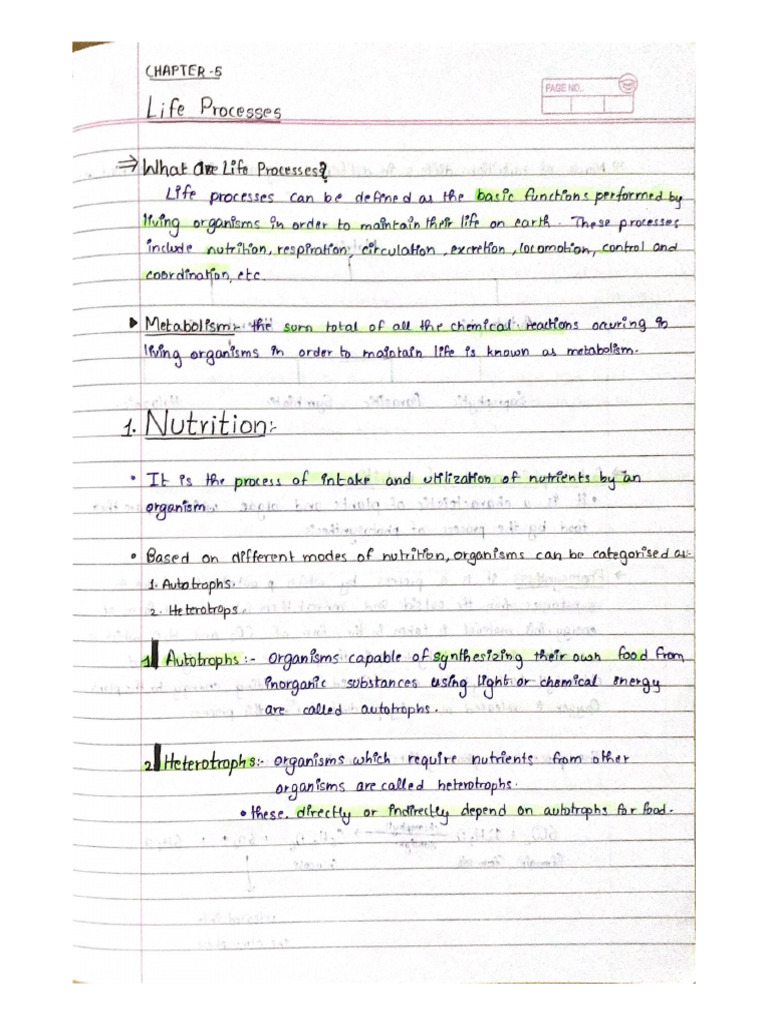 CHAPTER-5
PAGE NO.
Life Processes
⇒ What are Life Processes?
Life processes can be defined as the basic functions performed by
living organisms in order to maintain their life on earth. These processes
include nutrition, respiration, circulation, excretion, locomotion, control and
coordination, etc.
▶ Metabolism:- the sum total of all the chemical reactions occuring in
living organisms in order to maintain life is known as metabolism.
1. Nutrition:-
• It is the process of intake and utilization of nutrients by an
organism
• Based on different modes of nutrition, organisms can be categorised as:-
1. Autotrophs.
2. Heterotrops.
1. Autotrophs:- Organisms capable of synthesizing their own food from
inorganic substances using light or chemical energy
are called autotrophs.
2. Heterotrophs:- organisms which require nutrients from other
organisms are called heterotrophs.
• these directly or indirectly depend on autotrophs for food.